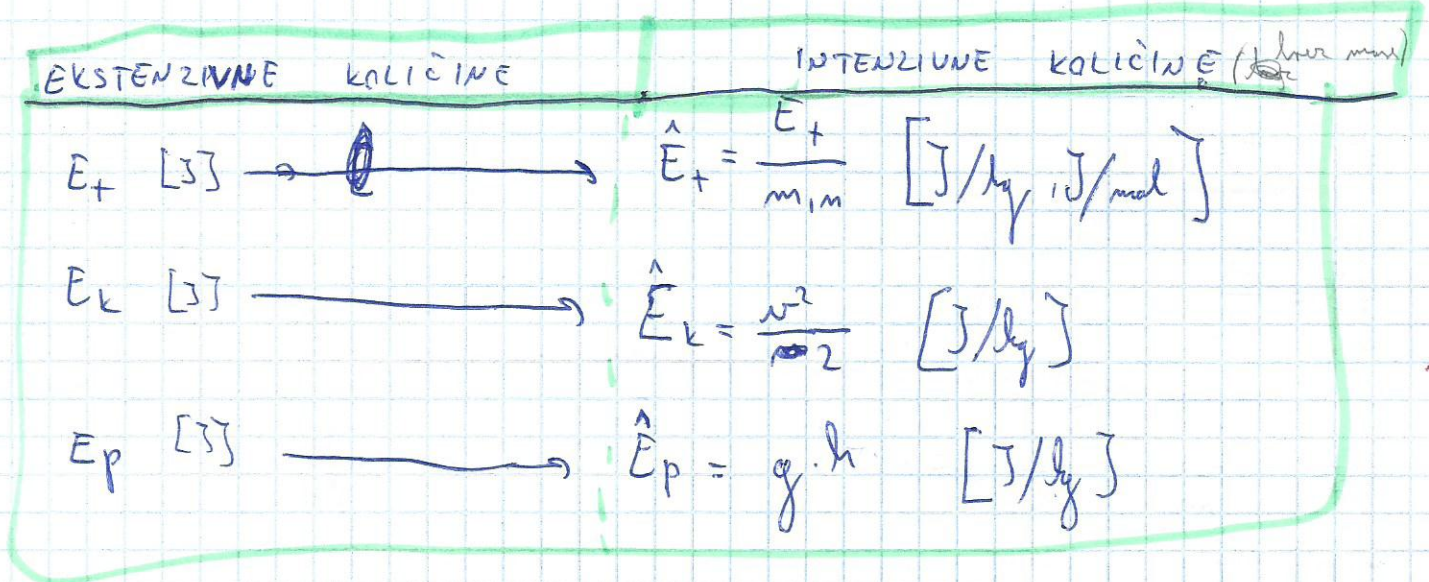 EKSTENZIVNE KOLIČINE INTENZIVNE KOLIČINE (brez mase)
E_t [J] → Ê_t = E_t / m, n [J/kg, J/mol]
E_k [J] → Ê_k = v² / 2 [J/kg]
E_p [J] → Ê_p = g · h [J/kg]